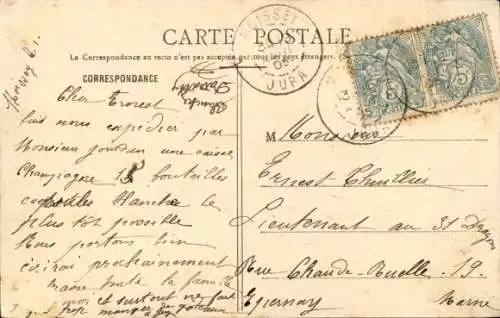 CARTE POSTALE
La Correspondance au recto n'est pas acceptée par tous les pays étrangers.
CORRESPONDANCE
JURA
Cher Ernest
fais nous expédier par
Monsieur Jourdan une caisse
Champagne 12 bouteilles
capsules blanche le
plus tôt possible
Nous portons bien
écrirai prochainement
la famille
moi et surtout ne fait
trop manger de gateaux
M Monsieur
Ernest Thuillier
Lieutenant au 31 Dragons
Rue Chaude-Ruelle. 19.
Epernay Marne